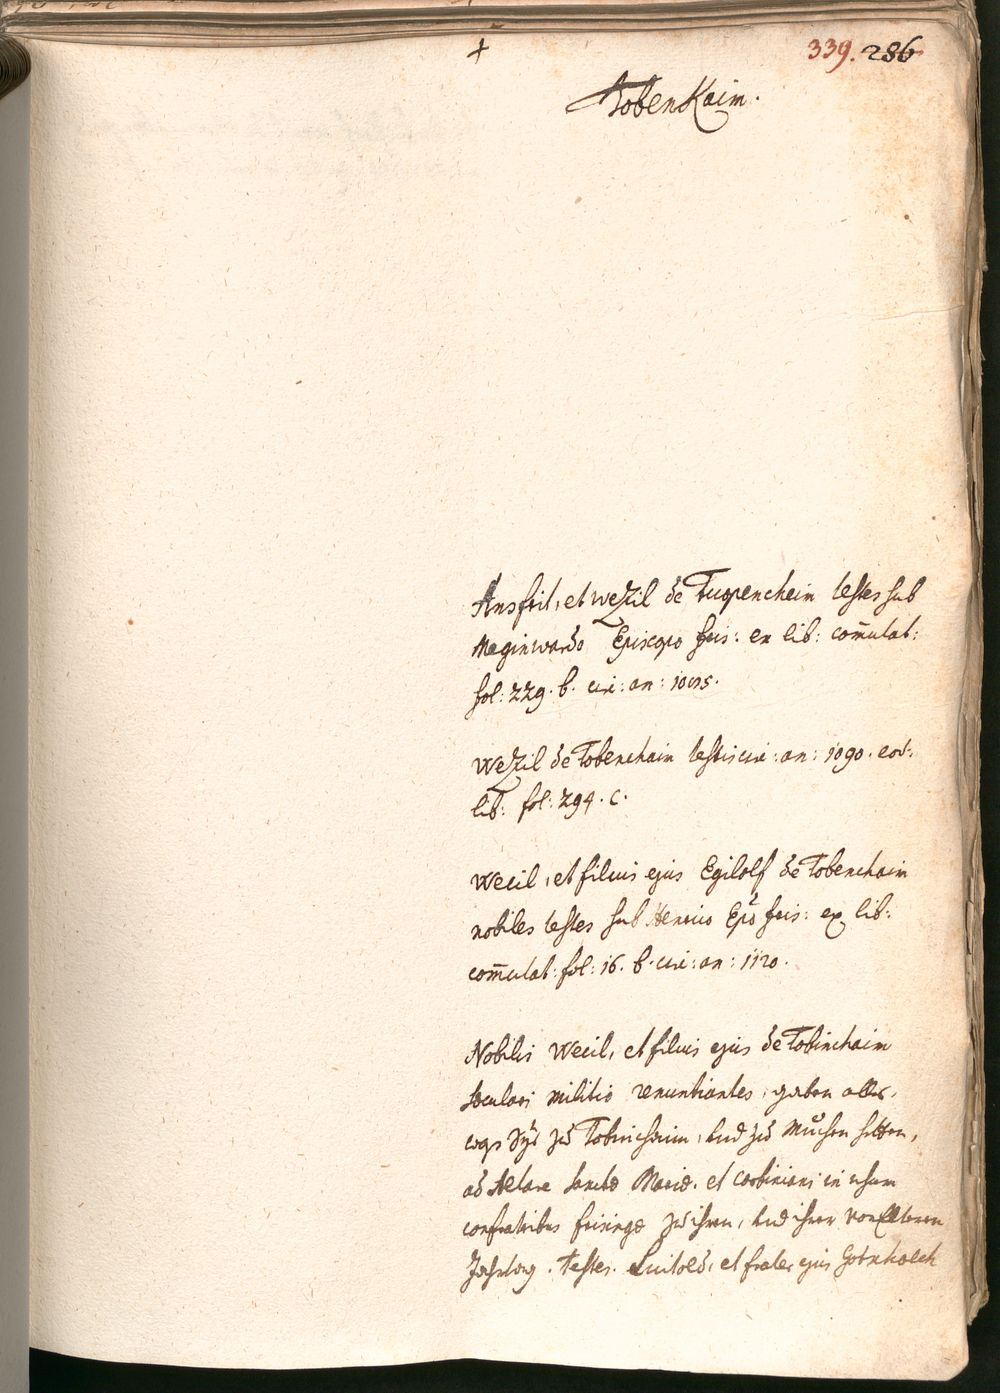 +
339. 286
Tobenkaim.
Ansfrit, et weZil de Tuopencheim testes sub
Maginwardo Episcopo fris: ex lib: com̄utat:
fol: 229. b. circ: an: 1085.
weZil de Tobenchain testis circ: an: 1090. eod:
lib: fol: 294. c.
Wecil, et filius ejus Egilolf de Tobenchain
nobiles testes sub Henrico Epo fris: ex lib:
com̄utat: fol: 16. b. circ: an: 1120.
Nobilis Wecil, et filius ejus de Tobinchaim
seculari militiæ renuntiantes, gaben alles,
was Sÿ zu Tobinchaim, und zu hetten,
ad Altare sanctæ Mariæ. et Corbiniani in usum
confratribus frisingæ zu ihren, und ihrer VorElteren
Jahrtag. testes. Luitold, et frater ejus Gotschalch